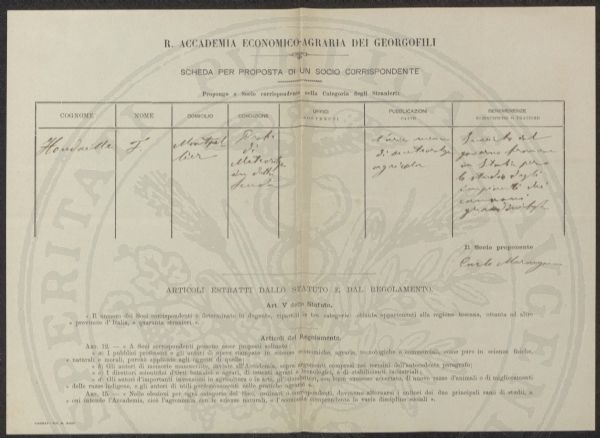 R. ACCADEMIA ECONOMICO-AGRARIA DEI GEORGOFILI
SCHEDA PER PROPOSTA DI UN SOCIO CORRISPONDENTE
Proposto a Socio corrispondente nella Categoria Degli Stranieri:
COGNOME NOME DOMICILIO CONDIZIONE UFFICI SOSTENUTI PUBBLICAZIONI FATTE BENEMERENZE SCIENTIFICHE O PRATICHE
Houdaille F. Montpellier
di
Meteorologia
Varie memorie
di meteorologia
agricola
governo francese
in Italia per
lo studio degli
impianti dei
cannoni
grandinifughi
Il Socio proponente
Carlo
ARTICOLI ESTRATTI DALLO STATUTO E DAL REGOLAMENTO.
Art. V dello Statuto.
« Il numero dei Soci corrispondenti è determinato in dugento, ripartiti in tre categorie: ottanta appartenenti alla regione toscana, ottanta ad altre
« provincie d'Italia, e quaranta stranieri ».
Articoli del Regolamento.
ART. 12. — « A Soci corrispondenti possono esser proposti soltanto:
« a: I pubblici professori e gli autori di opere stampate in scienze economiche, agrarie, tecnologiche o commerciali, come pure in scienze fisiche,
« naturali e morali, purché applicate agli oggetti di quelle;
« b: Gli autori di memorie manoscritte, inviate all'Accademia, sopra argomenti compresi nei termini dell'antecedente paragrafo;
« c: I direttori scientifici d'Orti botanici o agrari, di istituti agrari o tecnologici, o di stabilimenti industriali;
« d: Gli autori d'importanti invenzioni in agricoltura o in arte, gl'introduttori, con buon successo avverato, di nuove razze d'animali o di miglioramenti
« delle razze indigene, e gli autori di utili perfezionamenti nelle pratiche agrarie ».
ART. 15. — « Nelle elezioni per ogni categoria dei Soci, ordinari o corrispondenti, dovranno alternarsi i cultori dei due principali rami di studii, a
« cui intende l'Accademia, cioè l'agronomia con le scienze naturali, e l'economia comprendente le varie discipline sociali ».